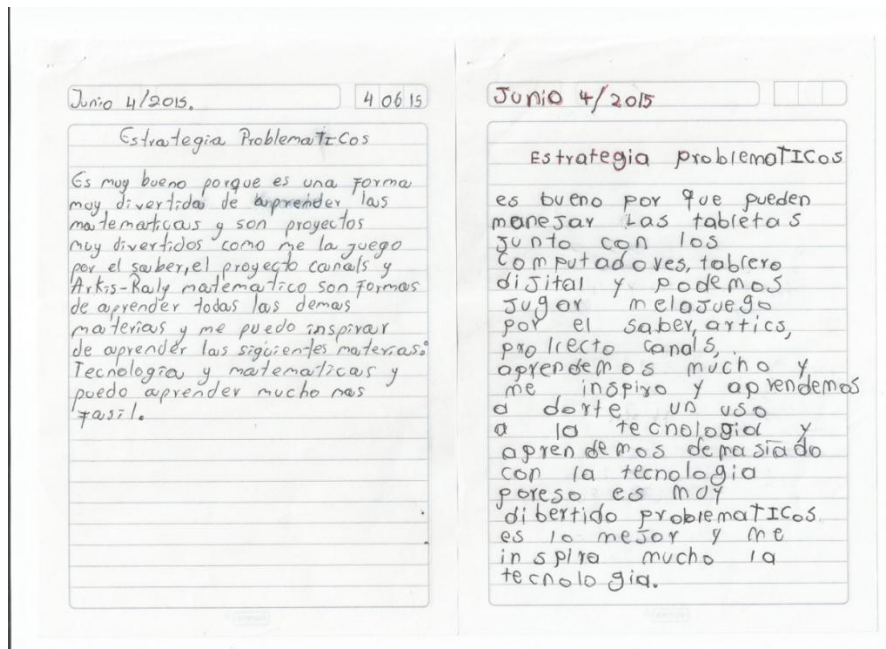 Junio 4/2015.
4 06 15
Estrategia ProblemaTICos
Es muy bueno porque es una forma
muy divertida de aprender las
matematicas y son proyectos
muy divertidos como me la juego
por el saber, el proyecto canals y
Artis-Raly matematico son formas
de aprender todas las demas
materias y me puedo inspirar
de aprender las siguientes materias:
Tecnologia y matematicas y
puedo aprender mucho mas
fasil.
Junio 4/2015
Estrategia problemaTICos
es bueno por que pueden
manejar las tabletas
junto con los
computadores, tablero
dijital y podemos
jugar melajuego
por el saber, artics,
prollecto canals,
aprendemos mucho y
me inspiro y aprendemos
a darte un uso
a la tecnologia y
aprendemos demasiado
con la tecnologia
poreso es muy
dibertido problemaTICos
es lo mejor y me
inspira mucho la
tecnologia.